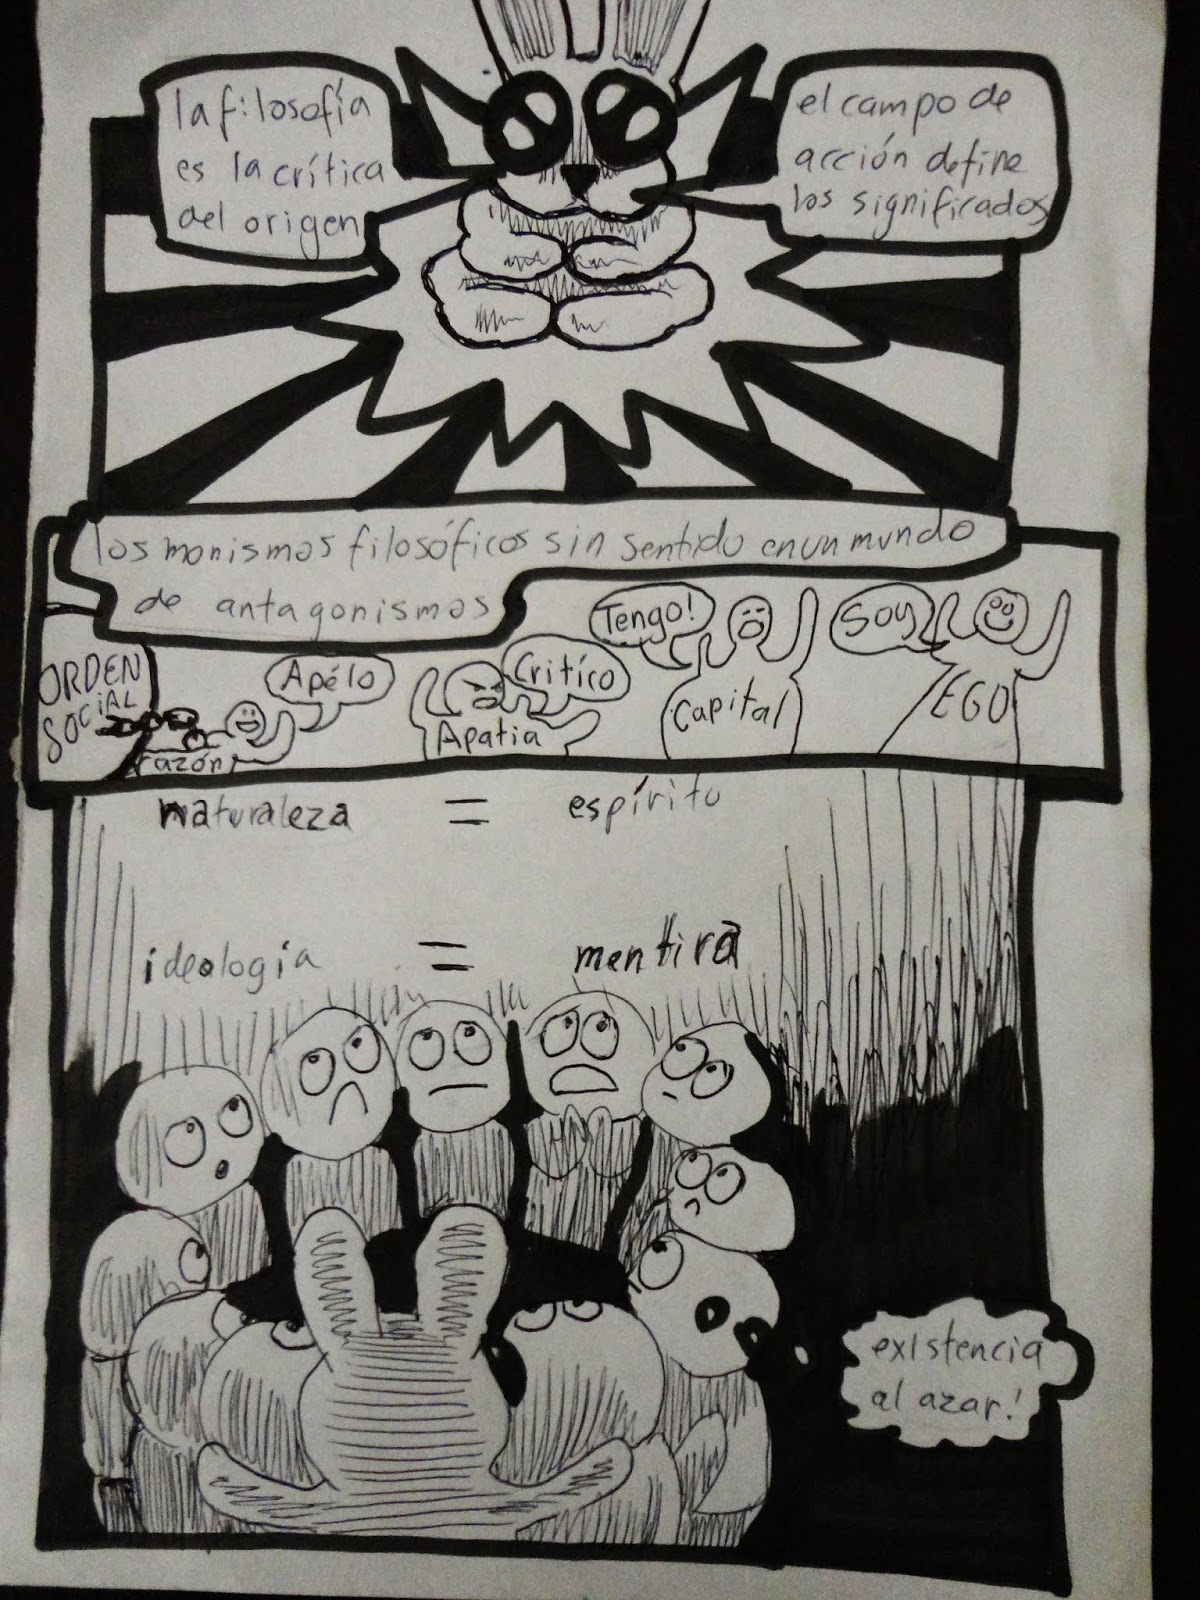 la filosofía
es la crítica
del origen
el campo de
acción define
los significados
los monismos filosóficos sin sentido en un mundo
de antagonismos
ORDEN
SOCIAL
razón
Apélo
Apatia
Critíco
Tengo!
Capital
Soy
EGO
naturaleza = espíritu
ideologia = mentira
existencia
al azar!